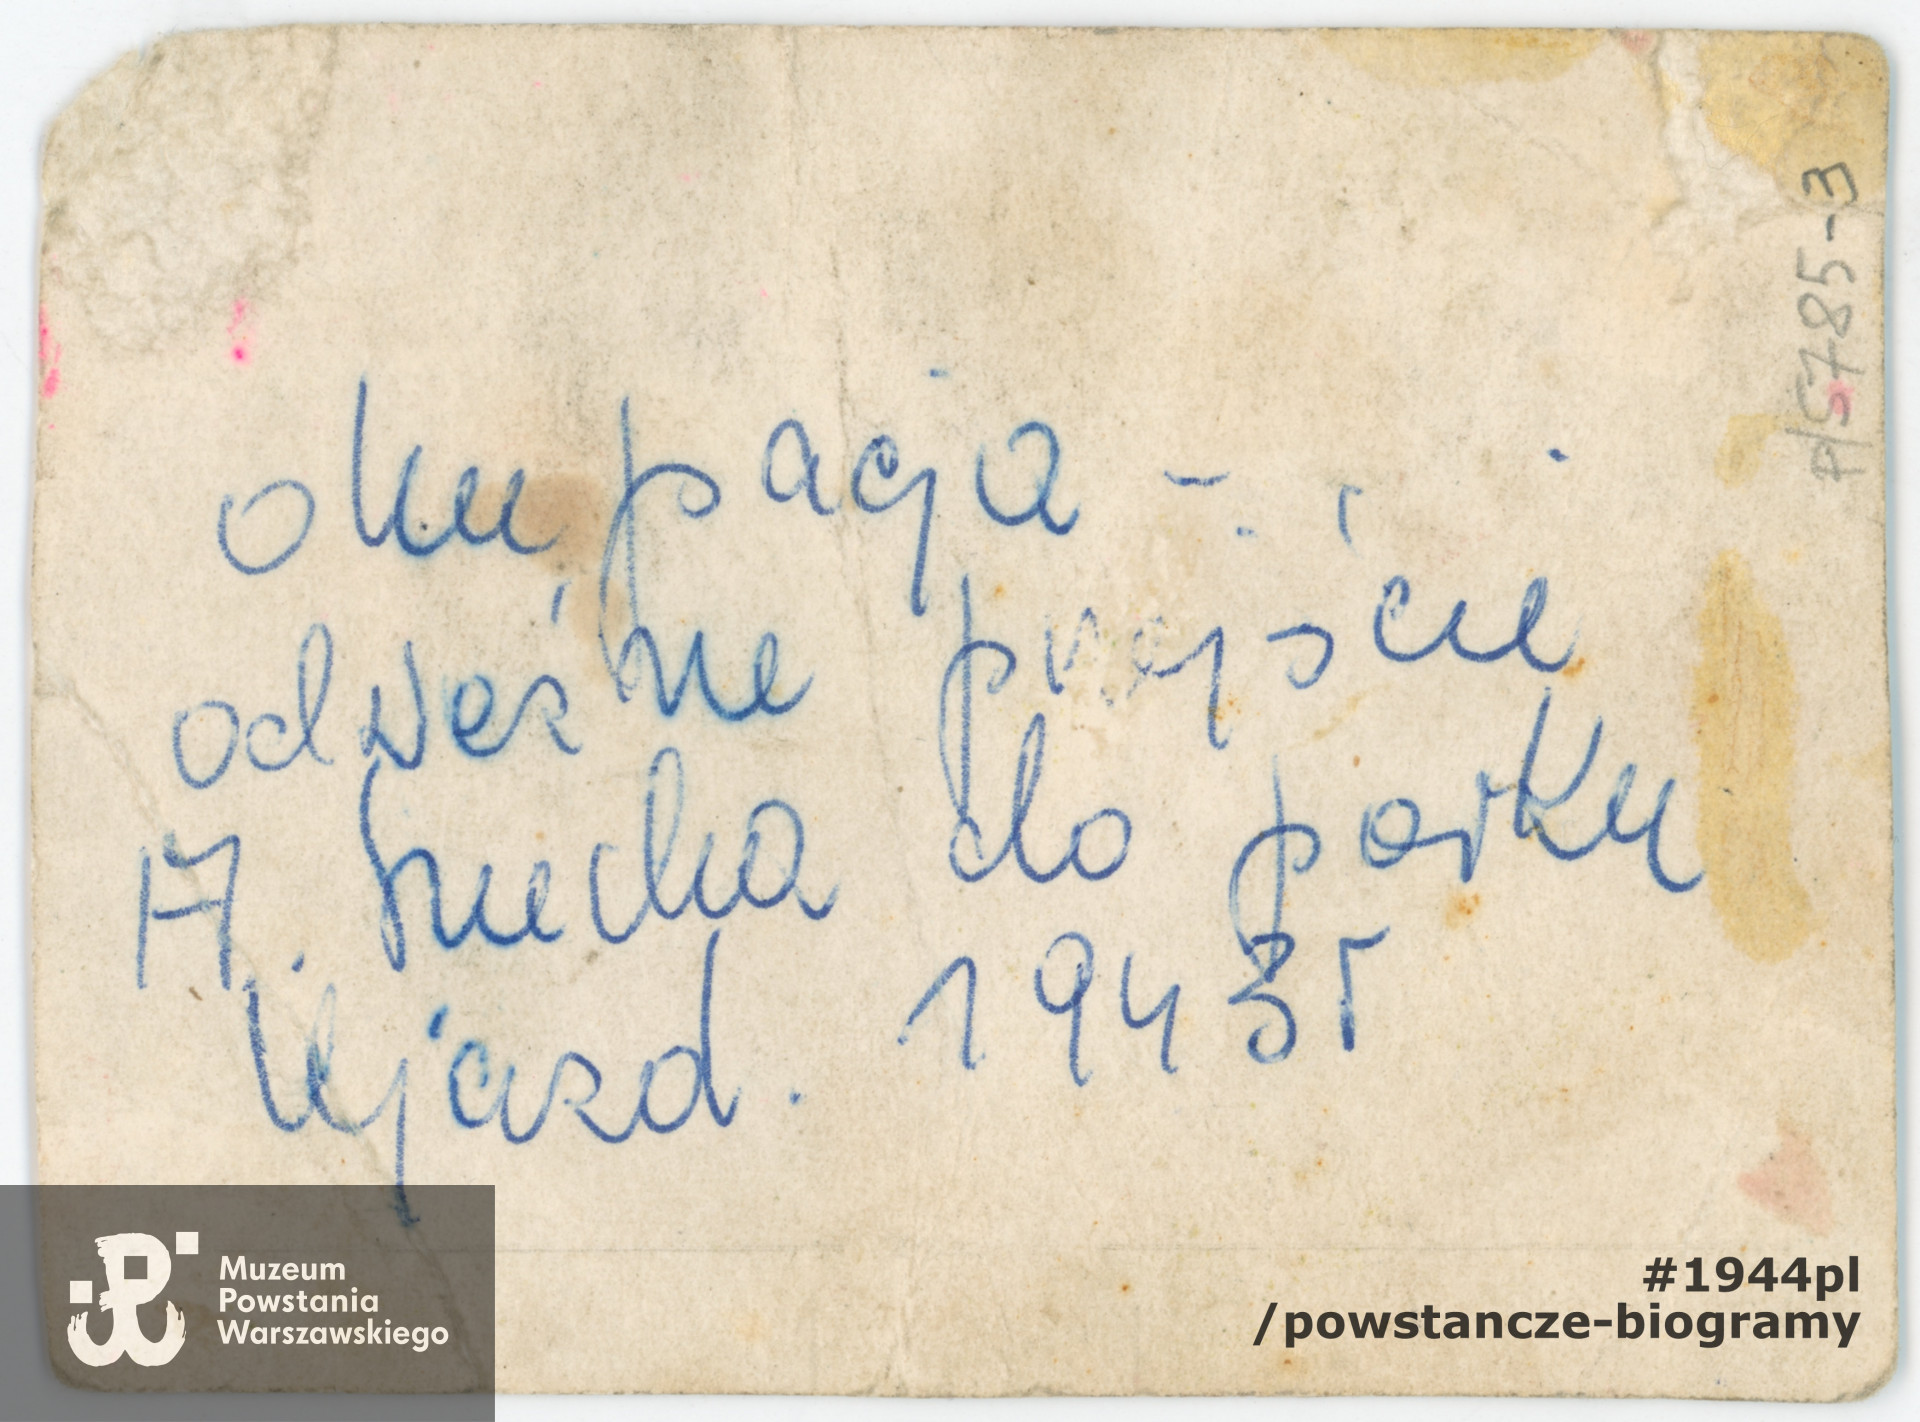 okupacja -
odważne przejście
A. Szucha do parku
Ujazd. 1943 r
P/5785-3
Muzeum
Powstania
Warszawskiego
#1944pl
/powstancze-biogramy